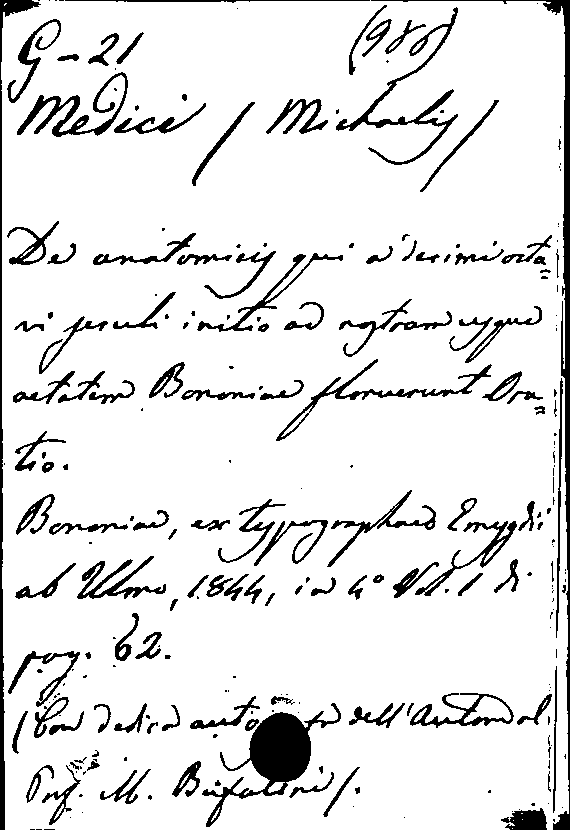 G-21 (988)
Medici / Michaelis /
De anatomicis qui a decimi octa=
vi seculi initio ad nostram usque
aetatem Bononiae floruerunt Ora=
tio.
Bononiae, ex typographaeo Emygdii
ab Ulmo, 1844, in 4° Vol. 1 di
pag. 62.
(Con dedica dell'Autore al
Prof. M. Bufalini).